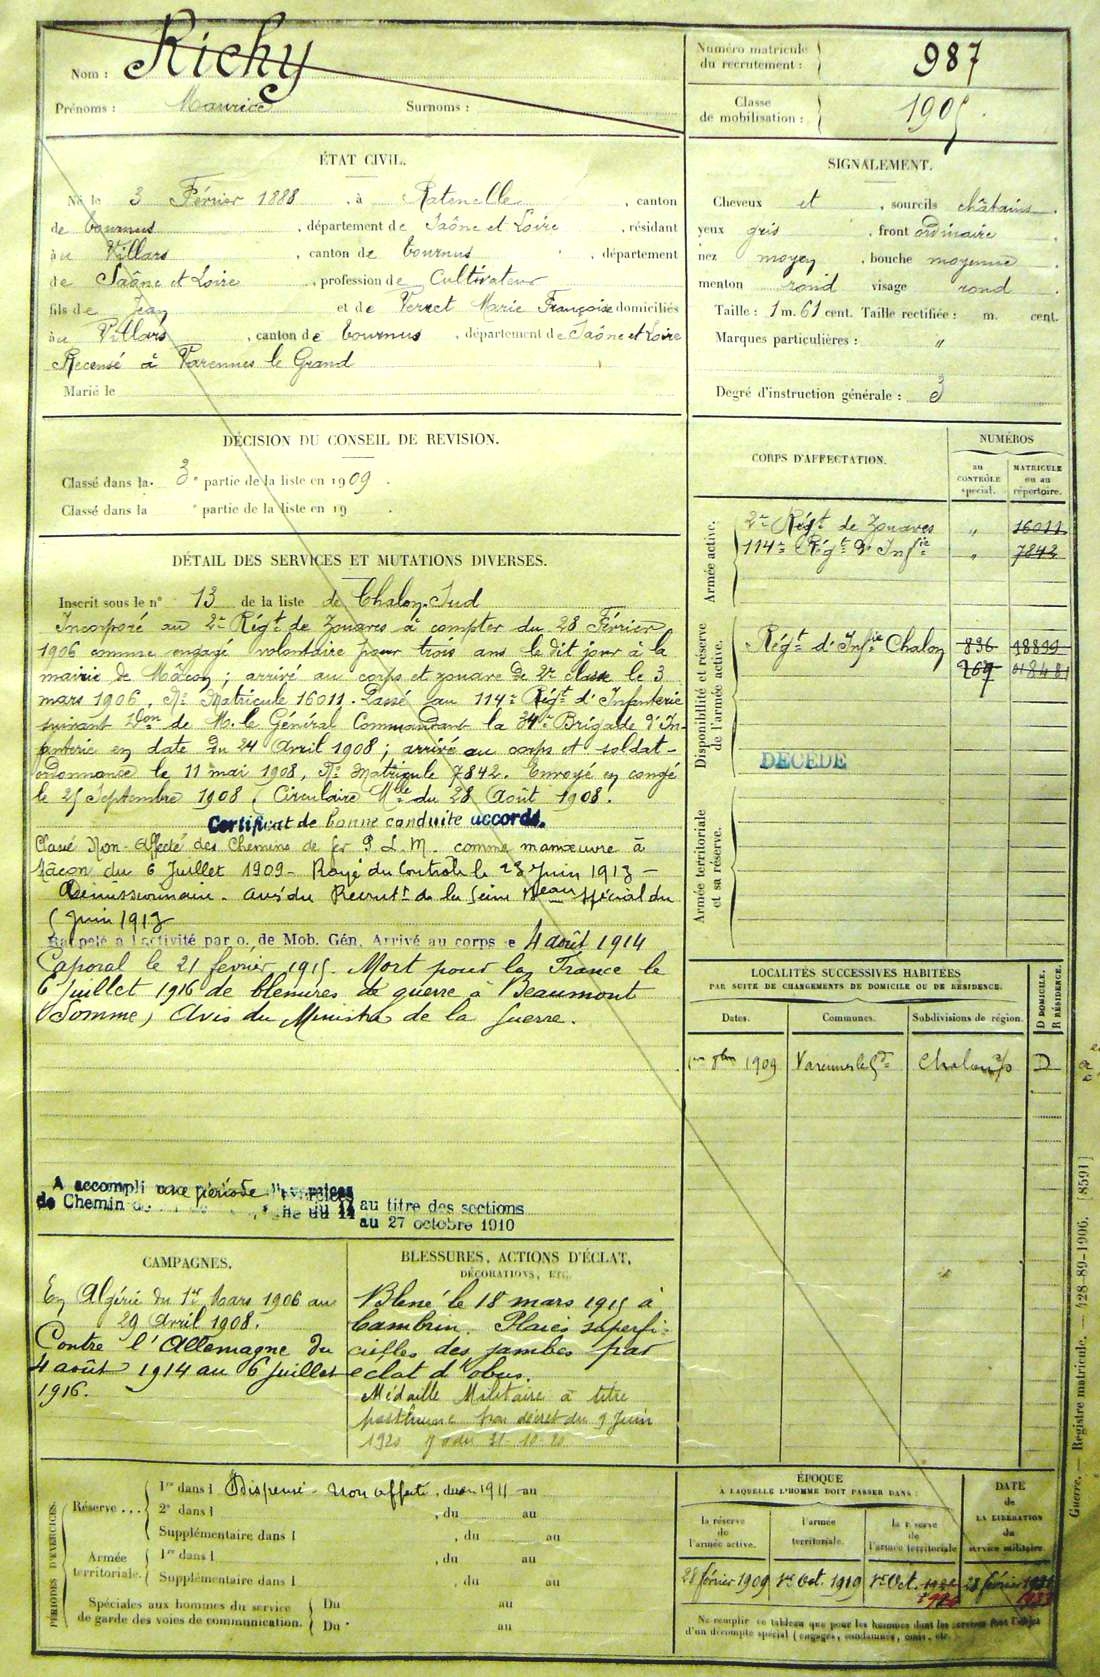 Nom : Richy
Prénoms : Maurice Surnoms :
Numéro matricule
du recrutement : 987
Classe
de mobilisation : 1905.
ÉTAT CIVIL.
Né le 3 Février 1888, à Ratenelle, canton
de Tournus, département de Saône et Loire, résidant
à Villars, canton de Tournus, département
de Saône et Loire, profession de Cultivateur
fils de Jean et de Verret Marie Françoise domiciliés
à Villars, canton de Tournus, département de Saône et Loire
Recensé à Varennes le Grand
Marié le
SIGNALEMENT.
Cheveux et , sourcils châtains.
yeux gris, front ordinaire,
nez moyen, bouche moyenne
menton rond visage rond
Taille : 1 m. 61 cent. Taille rectifiée : m. cent.
Marques particulières : "
Degré d'instruction générale : 3
DÉCISION DU CONSEIL DE REVISION.
Classé dans la 3e partie de la liste en 1909.
Classé dans la e partie de la liste en 19 .
DÉTAIL DES SERVICES ET MUTATIONS DIVERSES.
Inscrit sous le n° 13 de la liste de Chalon-Sud
Incorporé au 2e Régt de Zouaves à compter du 28 Février
1906 comme engagé volontaire pour trois ans le dit jour à la
mairie de Mâcon ; arrivé au corps et zouave de 2e classe le 3
mars 1906. No Matricule 16011. Passé au 114e Régt d'Infanterie
suivant Don de M. le Général Commandant la 34e Brigade d'In-
fanterie en date du 24 Avril 1908 ; arrivé au corps et soldat-
ordonnance le 11 mai 1908, No Matricule 7842. Envoyé en congé
le 25 Septembre 1908. Circulaire Mlle du 28 Août 1908.
Certificat de bonne conduite accordé.
Classé Non-Affecté des Chemins de fer P.L.M. comme manœuvre à
Mâcon du 6 Juillet 1909 - Rayé du Contrôle le 28 Juin 1913 -
Démissionnaire. avis du Recrutt de la Seine Beau spécial du
5 Juin 1913
Rappelé à l'activité par o. de Mob. Gén. Arrivé au corps le 4 août 1914
Caporal le 21 février 1915. Mort pour la France le
6 Juillet 1916 de blessures de guerre à Beaumont
(Somme) Avis du Ministre de la Guerre.
A accompli une période d'exercices
de Chemin de du 14 au titre des sections
au 27 octobre 1910
CORPS D'AFFECTATION.
NUMÉROS
au
CONTRÔLE
spécial.
MATRICULE
ou au
répertoire.
Armée active.
2e Régt de Zouaves " 16011
114e Régt d'Infie " 7842
Disponibilité et réserve
de l'armée active.
Régt d'Infie Chalon 836 18899
269 018481
DÉCÉDÉ
Armée territoriale
et sa réserve.
LOCALITÉS SUCCESSIVES HABITÉES
PAR SUITE DE CHANGEMENTS DE DOMICILE OU DE RÉSIDENCE.
Dates. Communes. Subdivisions de région.
D DOMICILE.
R RÉSIDENCE.
1er 8bre 1909 Varennes le Gd Chalon s/s D
CAMPAGNES.
En Algérie du 1er Mars 1906 au
29 Avril 1908.
Contre l'Allemagne du
4 août 1914 au 6 juillet
1916.
BLESSURES, ACTIONS D'ÉCLAT,
DÉCORATIONS, ETC.
Blessé le 18 mars 1915 à
Cambrin. Plaies superfi-
cielles des jambes par
éclat d'obus.
Médaille Militaire à titre
posthume par décret du 9 Juin
1920 J.O du 31-10-20
PÉRIODES D'EXERCICES.
Réserve ...
1re dans l Dispensé - non affecté, du en 1911 au
2e dans l , du au
Supplémentaire dans l , du au
Armée
territoriale.
1re dans l , du au
Supplémentaire dans l , du au
Spéciales aux hommes du service
de garde des voies de communication.
Du au
Du au
ÉPOQUE
À LAQUELLE L'HOMME DOIT PASSER DANS :
la réserve
de
l'armée active.
l'armée
territoriale.
la réserve
de
l'armée territoriale
DATE
de
LA LIBÉRATION
du
service militaire.
28 février 1909 1er Oct. 1919 1er Oct. 28 février 1931
1933
Ne remplir ce tableau que pour les hommes dont les services font l'objet
d'un décompte spécial (engagés, condamnés, omis, etc.
Guerre. — Registre matricule. — 128-89-1906. [8591]